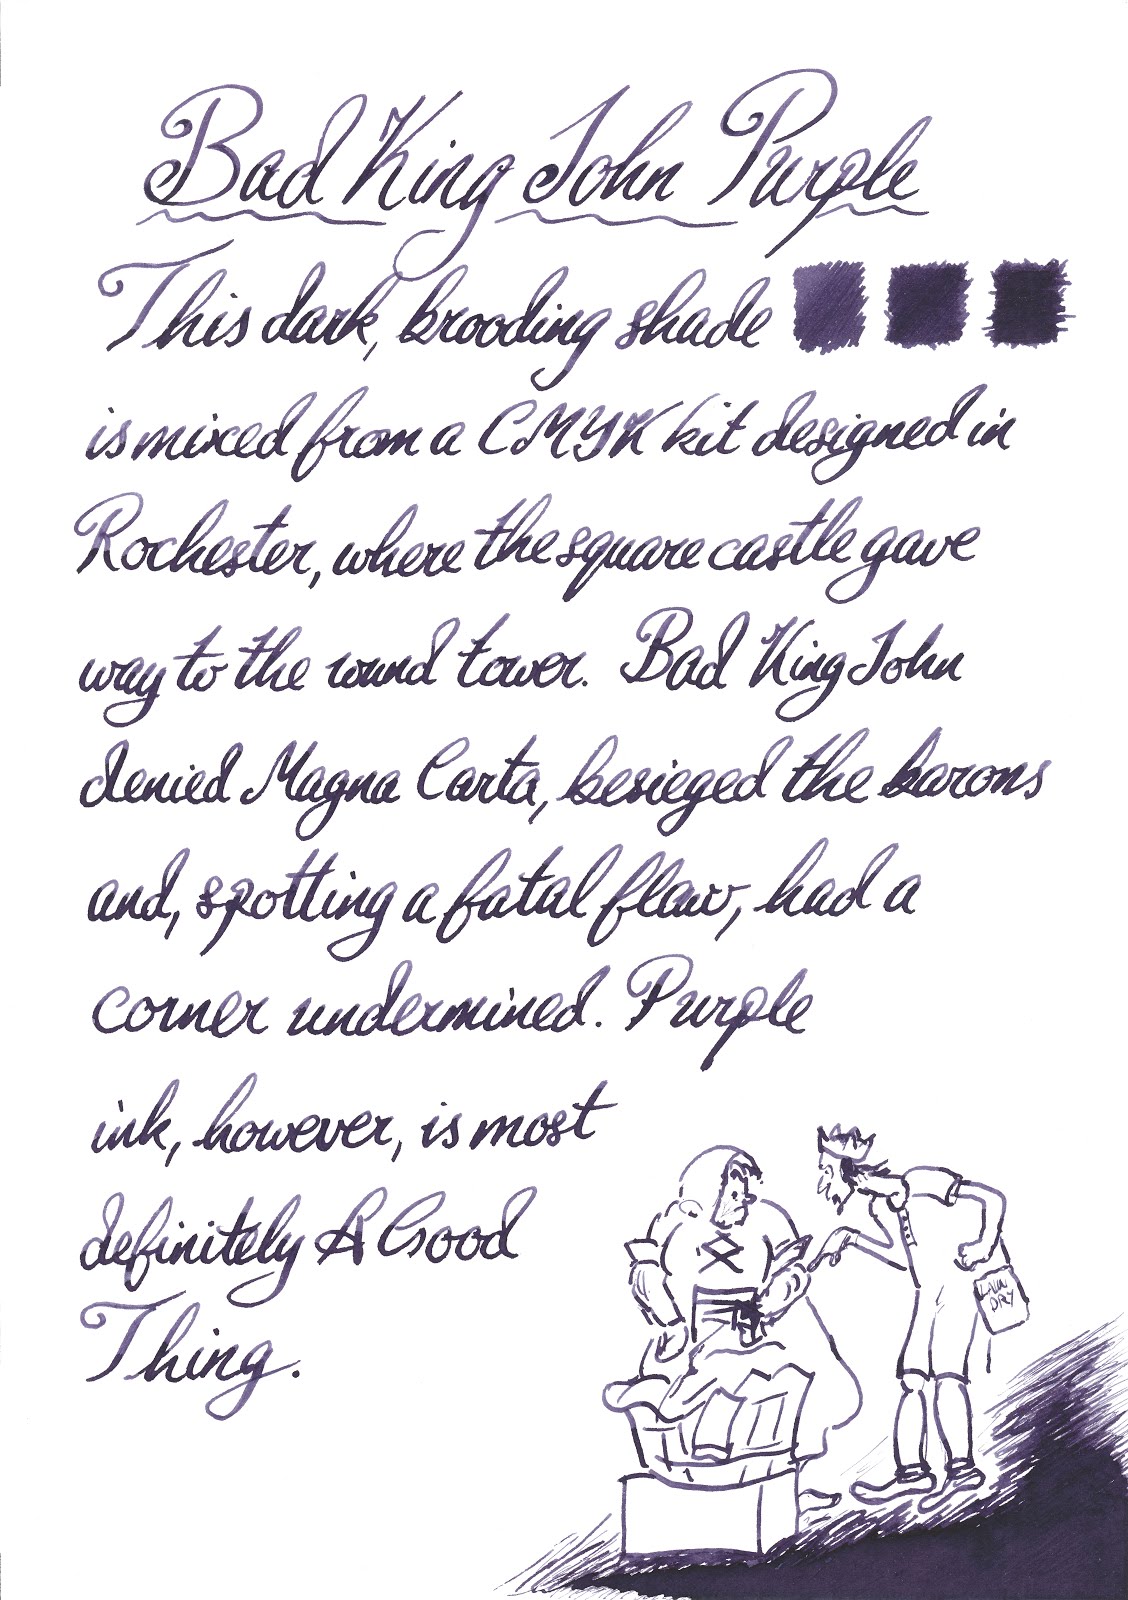 Bad King John Purple
This dark, brooding shade
is mixed from a CMYK kit designed in
Rochester, where the square castle gave
way to the round tower. Bad King John
denied Magna Carta, besieged the barons
and, spotting a fatal flaw, had a
corner undermined. Purple
ink, however, is most
definitely A Good
Thing.
LAUN
DRY